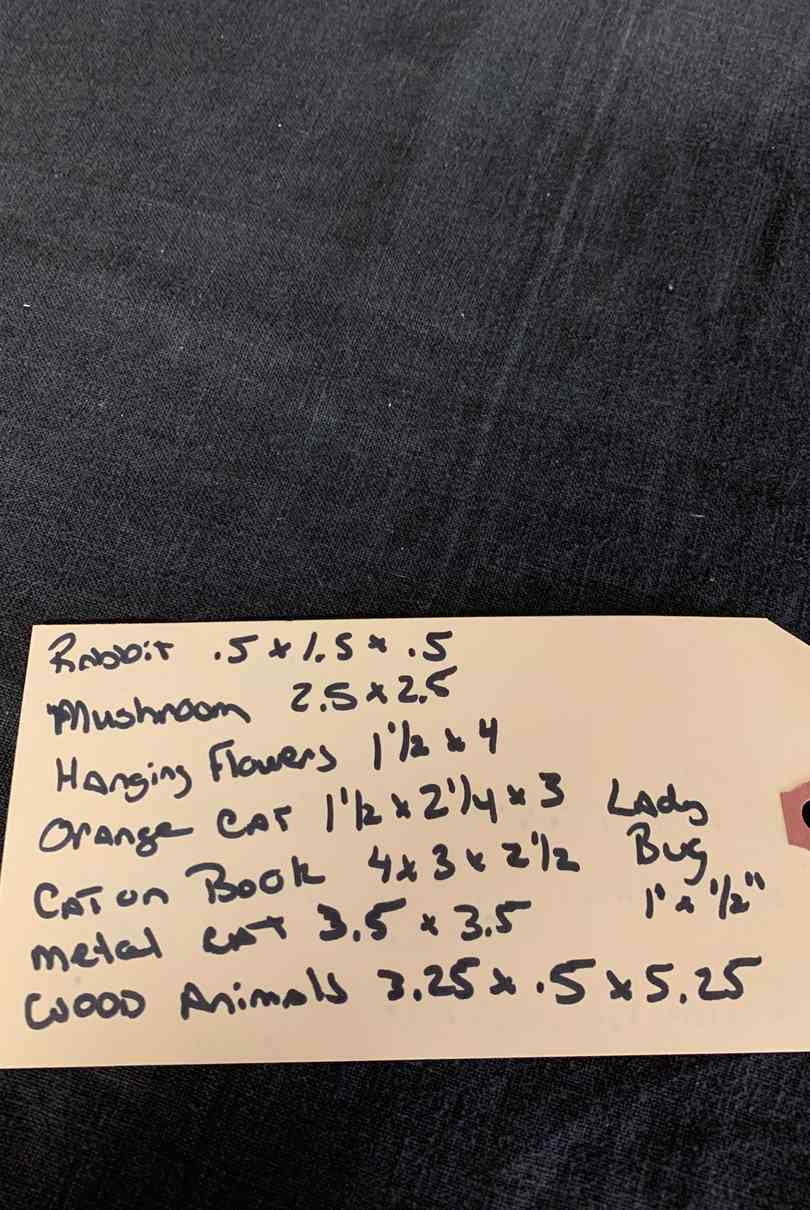 Rabbit .5 x 1.5 x .5
Mushroom 2.5 x 2.5
Hanging Flowers 1 1/2 x 4
Orange CAT 1 1/2 x 2 1/4 x 3
CAT on Book 4 x 3 x 2 1/2
metal CAT 3.5 x 3.5
WOOD Animals 3.25 x .5 x 5.25
LADy
Bug
1" x 1/2"